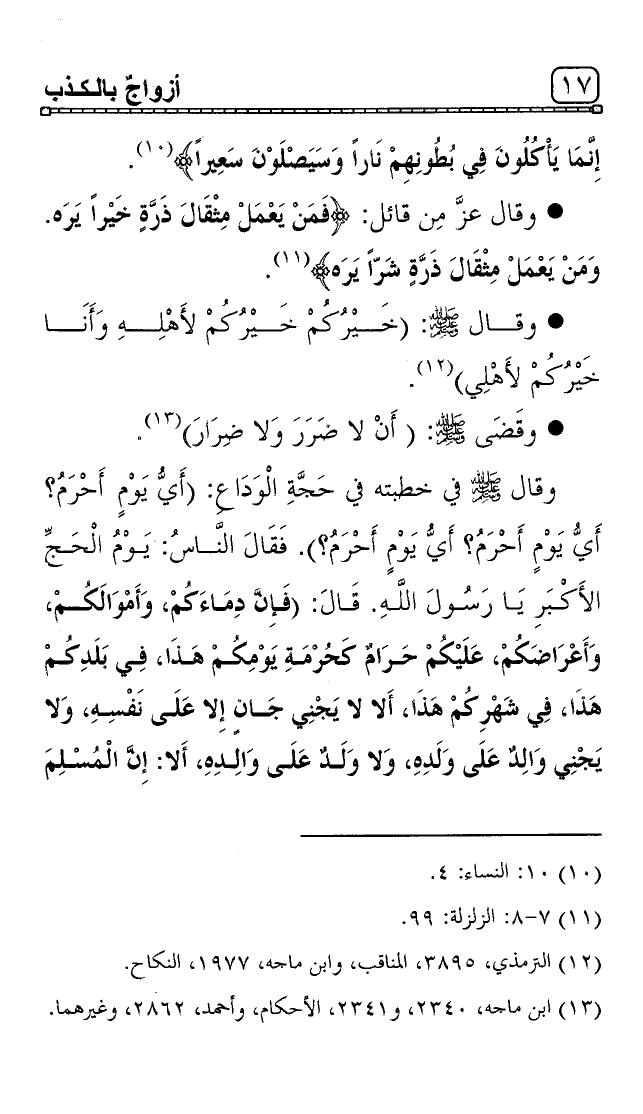 ١٧
أزواجٌ بالكذب
إِنَّمَا يَأْكُلُونَ فِي بُطُونِهِمْ نَاراً وَسَيَصْلَوْنَ سَعِيراً﴾(١٠).
● وقال عزَّ مِن قائل: ﴿فَمَن يَعْمَلْ مِثْقَالَ ذَرَّةٍ خَيْراً يَرَه.
وَمَنْ يَعْمَلْ مِثْقَالَ ذَرَّةٍ شَرّاً يَرَه﴾(١١).
● وقال ﷺ: (خَيْرُكُمْ خَيْرُكُمْ لأَهْلِهِ وَأَنَا
خَيْرُكُمْ لأَهْلِي)(١٢).
● وقَضَى ﷺ: ( أَنْ لا ضَرَرَ وَلا ضِرَارَ)(١٣).
وقال ﷺ في خطبته في حَجَّةِ الْوَدَاعِ: (أَيُّ يَوْمٍ أَحْرَمُ؟
أَيُّ يَوْمٍ أَحْرَمُ؟ أَيُّ يَوْمٍ أَحْرَمُ؟). فَقَالَ النَّاسُ: يَوْمُ الْحَجِّ
الأَكْبَرِ يَا رَسُولَ اللَّهِ. قَالَ: (فَإِنَّ دِمَاءَكُمْ، وَأَمْوَالَكُمْ،
وَأَعْرَاضَكُمْ، عَلَيْكُمْ حَرَامٌ كَحُرْمَةِ يَوْمِكُمْ هَذَا، فِي بَلَدِكُمْ
هَذَا، فِي شَهْرِكُمْ هَذَا، أَلا لا يَجْنِي جَانٍ إِلا عَلَى نَفْسِهِ، وَلا
يَجْنِي وَالِدٌ عَلَى وَلَدِهِ، وَلا وَلَدٌ عَلَى وَالِدِهِ، أَلا: إِنَّ الْمُسْلِمَ
(١٠) ١٠: النساء: ٤.
(١١) ٧-٨: الزلزلة: ٩٩.
(١٢) الترمذي، ٣٨٩٥، المناقب، وابن ماجه، ١٩٧٧، النكاح.
(١٣) ابن ماجه، ٢٣٤٠، و٢٣٤١، الأحكام، وأحمد، ٢٨٦٢، وغيرهما.